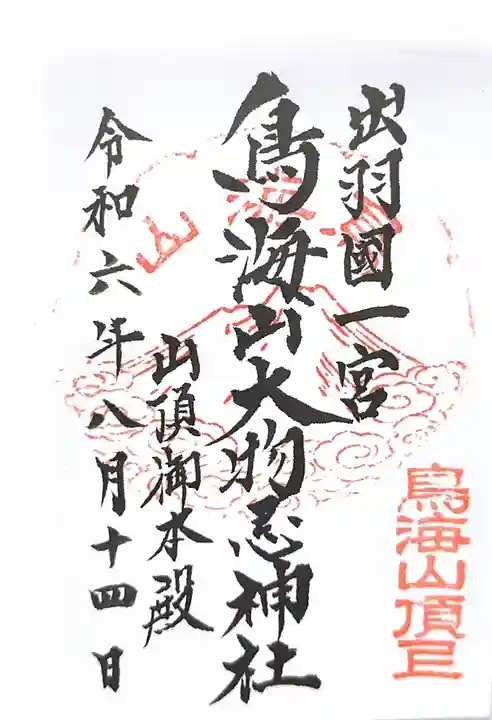 出羽國一宮
鳥海山大物忌神社
山頂御本殿
令和六年八月十四日
鳥海山
鳥海山頂